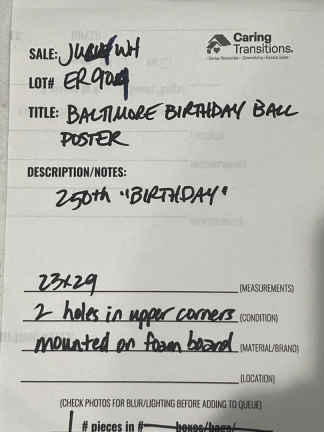 Caring
Transitions.
Senior Relocation • Downsizing • Estate Sales
SALE: WH
LOT# ER9009
TITLE: BALTIMORE BIRTHDAY BALL
POSTER
DESCRIPTION/NOTES:
250th "BIRTHDAY"
23x29 (MEASUREMENTS)
2 holes in upper corners (CONDITION)
mounted on foam board (MATERIAL/BRAND)
(LOCATION)
(CHECK PHOTOS FOR BLUR/LIGHTING BEFORE ADDING TO QUEUE)
# pieces in # boxes/bags/